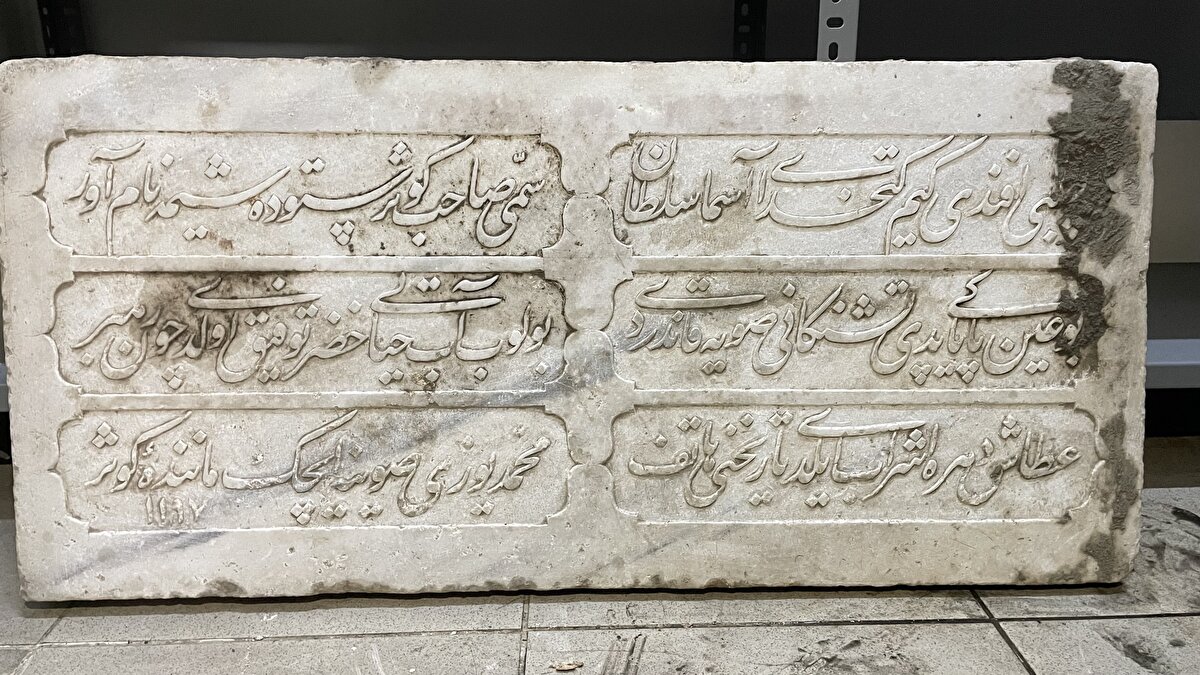 افندی کیم کتخدای آسما سلطان
سمی صاحب کوثر ستوده شیمه نام آور
بو عین پاکی یاپدی تشنکانی صویه قاندردی
بولوب آب حیاتی خضر توفیق اولدی چون رهبر
عطاش بهره اشراب ایلدی تاریخنی هاتف
محمد یوزی صوینه ایچک ماننده کوثر
١١٩٧